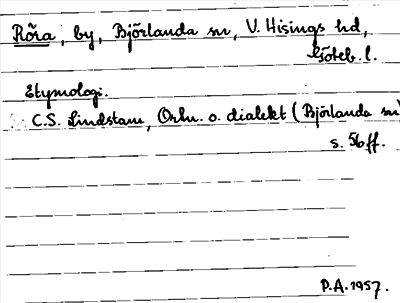 Röra, by, Björlanda sn, V. Hisings hd,
Göteb. l.
Etymologi.
C.S. Lindstam, Ortn. o. dialekt (Björlanda sn)
s. 56 ff.
P.A. 1957.